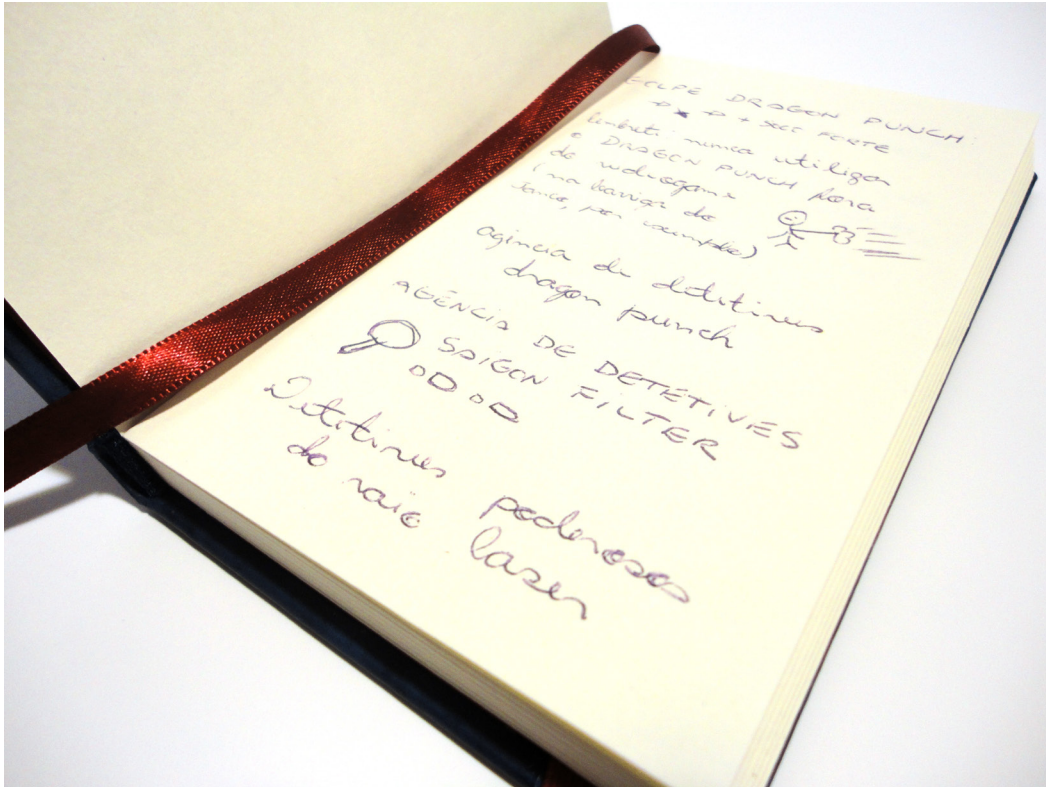 GOLPE DRAGON PUNCH:
+ SOCO FORTE
lembrete: nunca utilizar
o DRAGON PUNCH fora
do videogame
(na barriga do
por exemplo)
agência de detetives
dragon punch
AGÊNCIA DE DETETIVES
SAIGON FILTER
Detetives poderosos
do raio laser